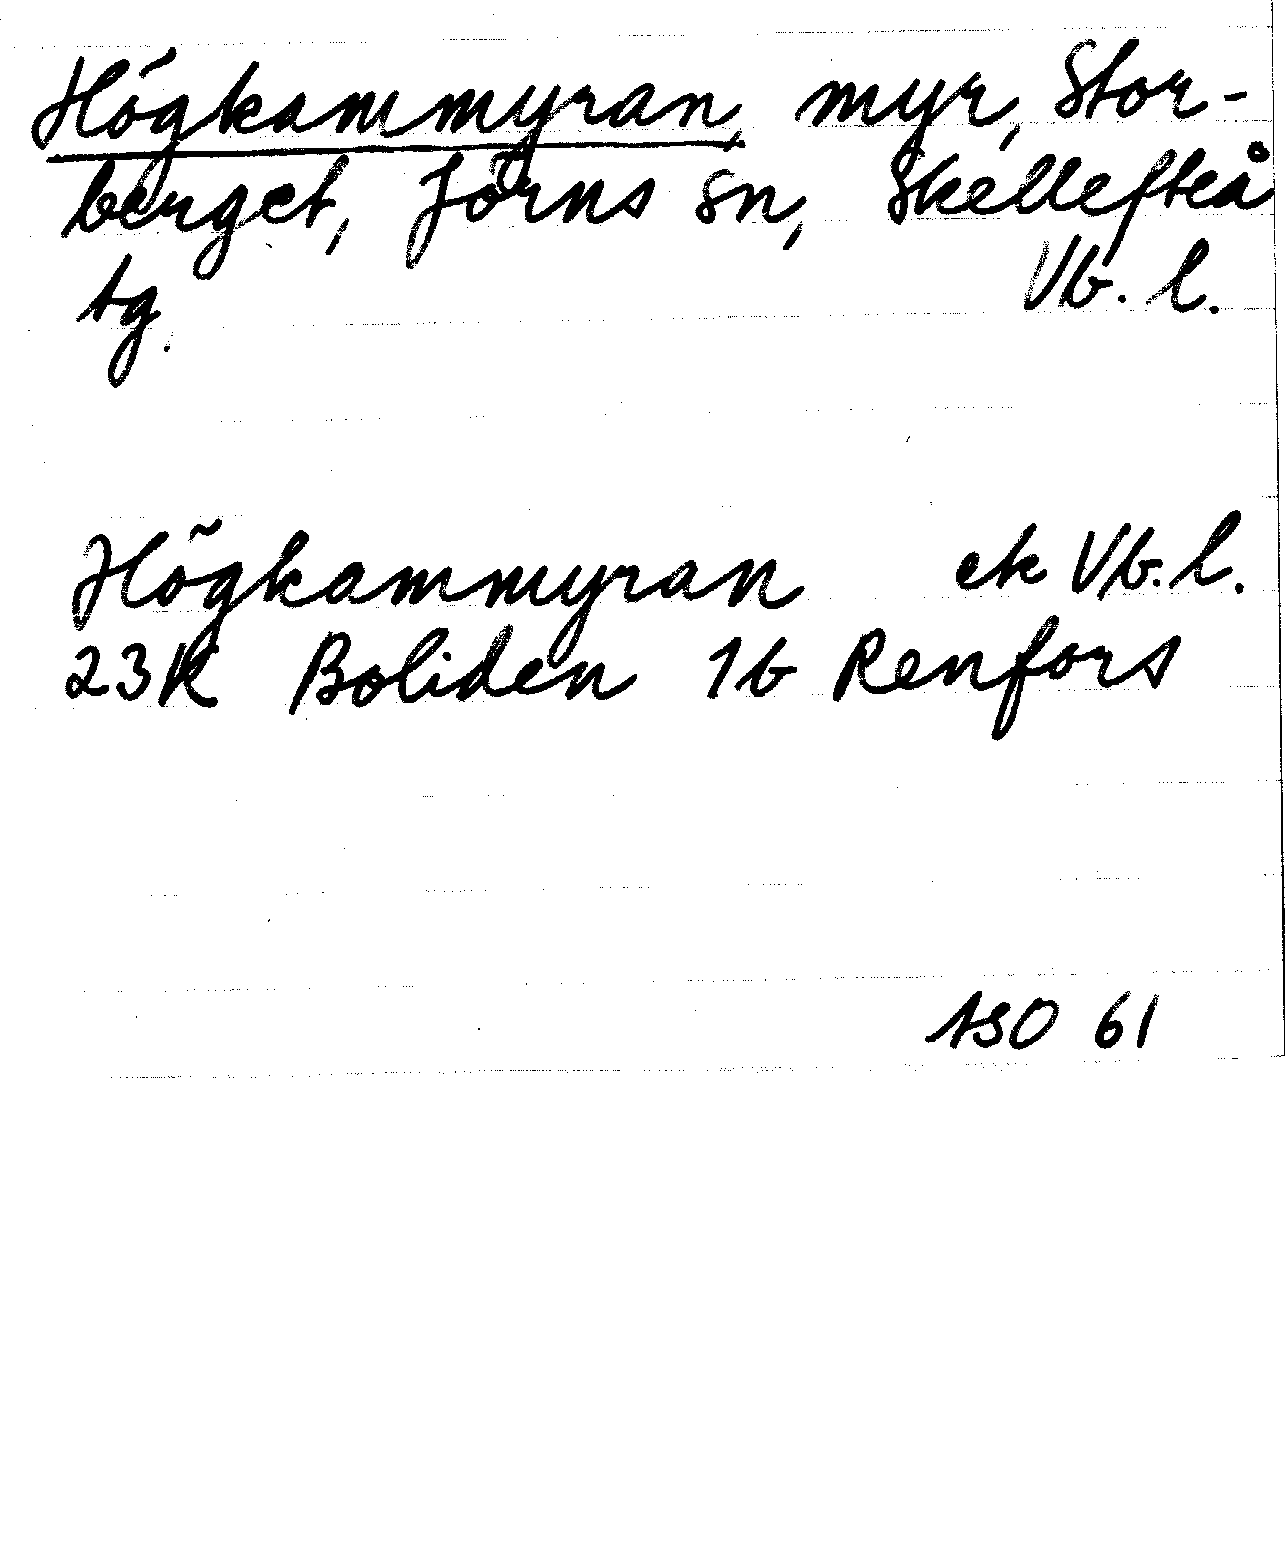 Högkammyran, myr, Stor-
berget, Jörns sn, Skellefteå
tg. Vb. l.
Högkammyran ek Vb. l.
23K Boliden 1b Renfors
ASO 61